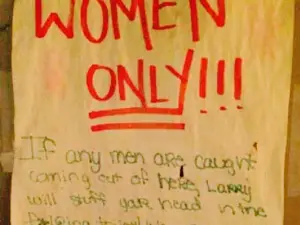 WOMEN
ONLY!!!
If any men are caught
coming out of here, Larry
will stuff your head in the